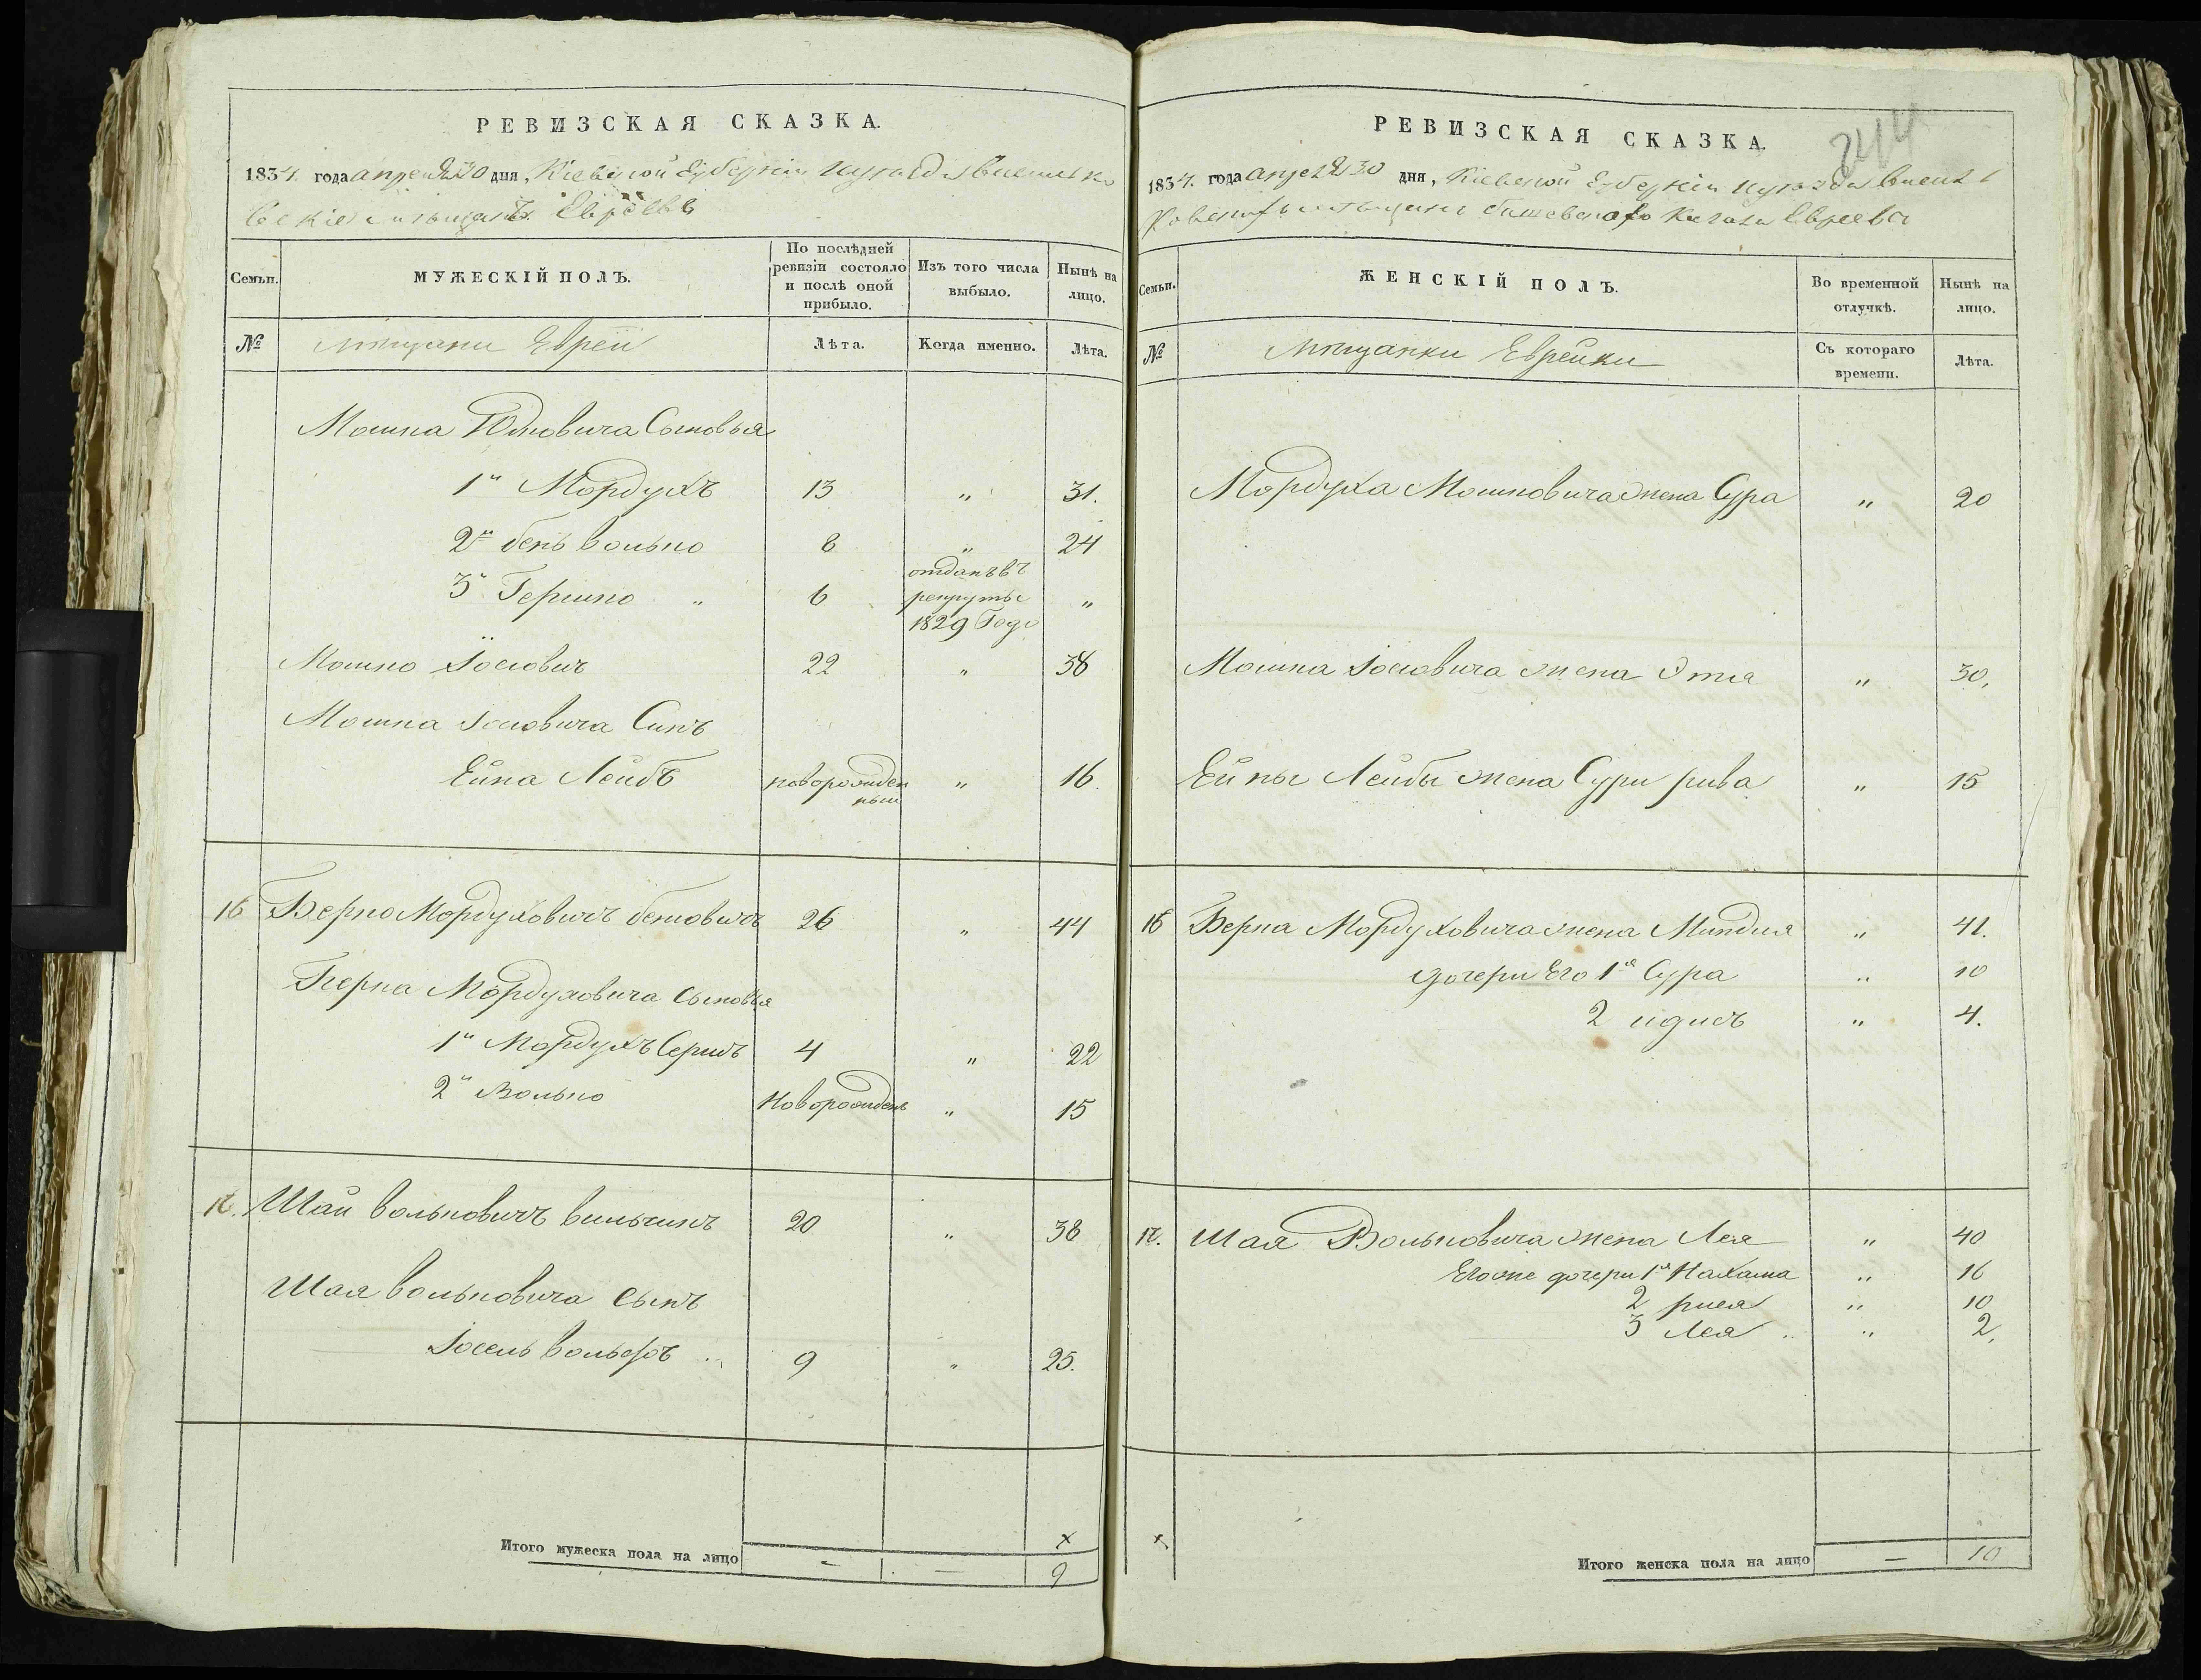 РЕВИЗСКАЯ СКАЗКА.
1834. года апреля 30 дня, Кіевской Губерніи
Евреевъ
Семьи.
МУЖЕСКІЙ ПОЛЪ.
По послѣдней ревизіи состояло и послѣ оной прибыло.
Изъ того числа выбыло.
Нынѣ на лицо.
№
мѣщани Евреи
Лѣта.
Когда именно.
Лѣта.
Мошка Юдковича Сыновья
1й Мордухъ 13 " 31.
2й бень волько 8 " 24
3й Гершко " 6 отданъ въ рекруты 1829 Году "
Мошко Іосіовичъ 22 " 38
Мошка Іосіовича Синъ
Ейна Лейбъ новорожденный " 16.
16 Берко Мордуховичъ 26 " 44
Берка Мордуховича сыновья
1й Мордухъ 4 " 22
2й Волько Новорожденъ " 15
Шаи вольковичъ вильчикъ 20 " 38
Шая вольковича сынъ
Іосель вольфъ 9 " 25.
Итого мужеска пола на лицо — — 9
х
РЕВИЗСКАЯ СКАЗКА.
244
1834. года апреля 30 дня, Кіевской Губерніи
Кагала Евреевъ
Семьи.
ЖЕНСКІЙ ПОЛЪ.
Во временной отлучкѣ.
Нынѣ на лицо.
№
Мѣщанки Еврейки
Съ котораго времени.
Лѣта.
Мордуха Мошковича жена Сура " 20
Мошка Іосіовича жена Этя " 30,
Ейны Лейбы жена Сури рива " 15
16 Берка Мордуховича жена Миндля " 41.
дочери Его 1я Сура " 10
2 идись " 4.
Шая Вольковича жена Лея " 40
Егоже дочери 1я Нахама " 16
2 рися " 10
3 Лея " 2,
х
Итого женска пола на лицо — 10